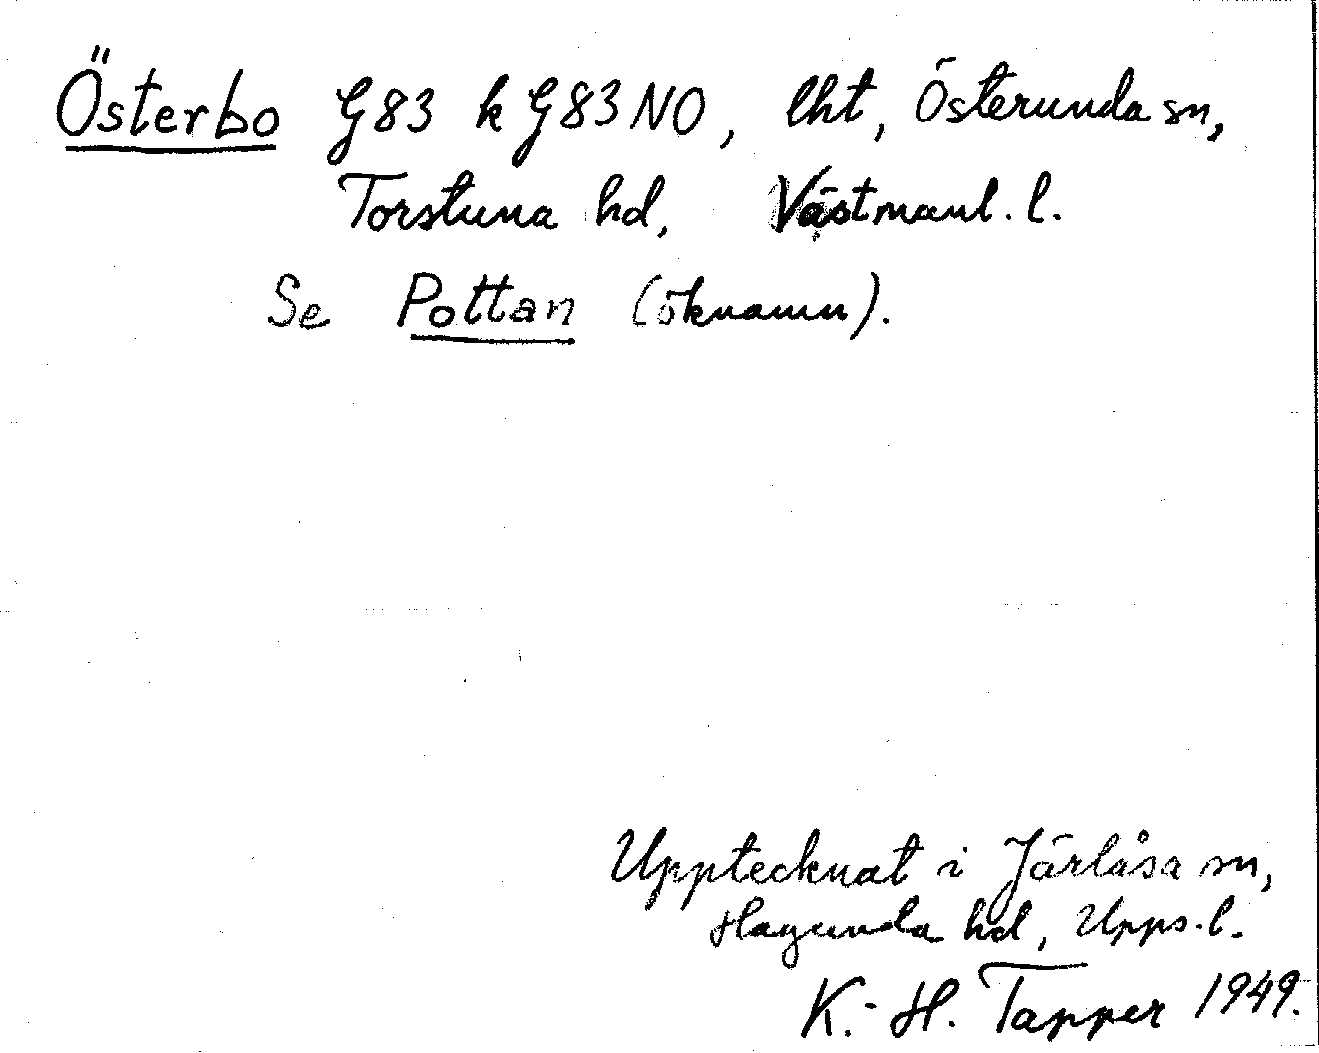 Österbo G83 k G83NO, lht, Österunda sn,
Torstuna hd, Västmanl. l.
Se Pottan (öknamn).
Upptecknat i Järlåsa sn,
Hagunda hd, Upps. l.
K.-H. Tapper 1949.